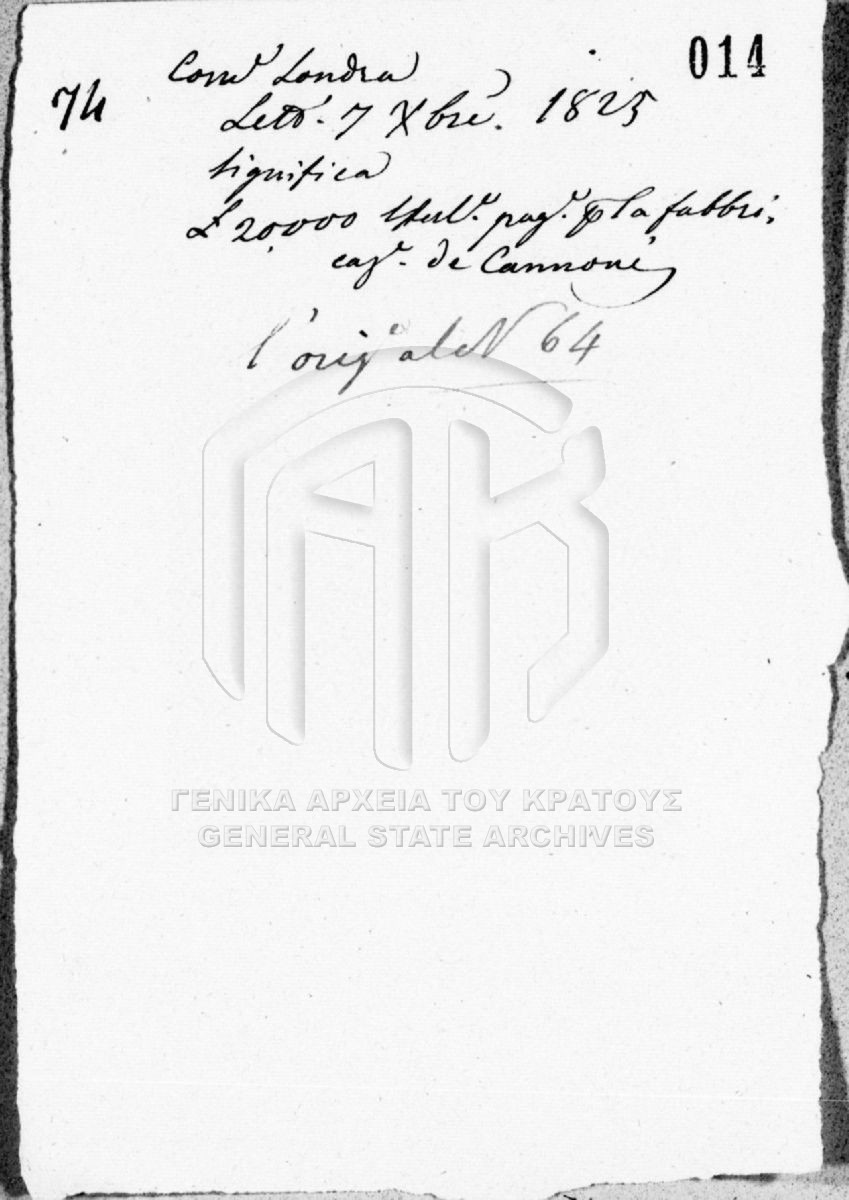 014
74
Com.º Londra
Lett.ª 7 Xbre. 1825
significa
£ 20,000 Sterl.e pag.e p la fabbri-
caz.e de Cannoni
l'orig.e al N 64
ΓΕΝΙΚΑ ΑΡΧΕΙΑ ΤΟΥ ΚΡΑΤΟΥΣ
GENERAL STATE ARCHIVES